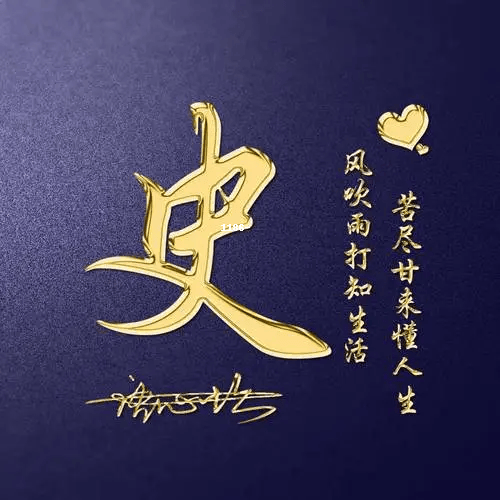 史
1198
风吹雨打知生活
苦尽甘来懂人生